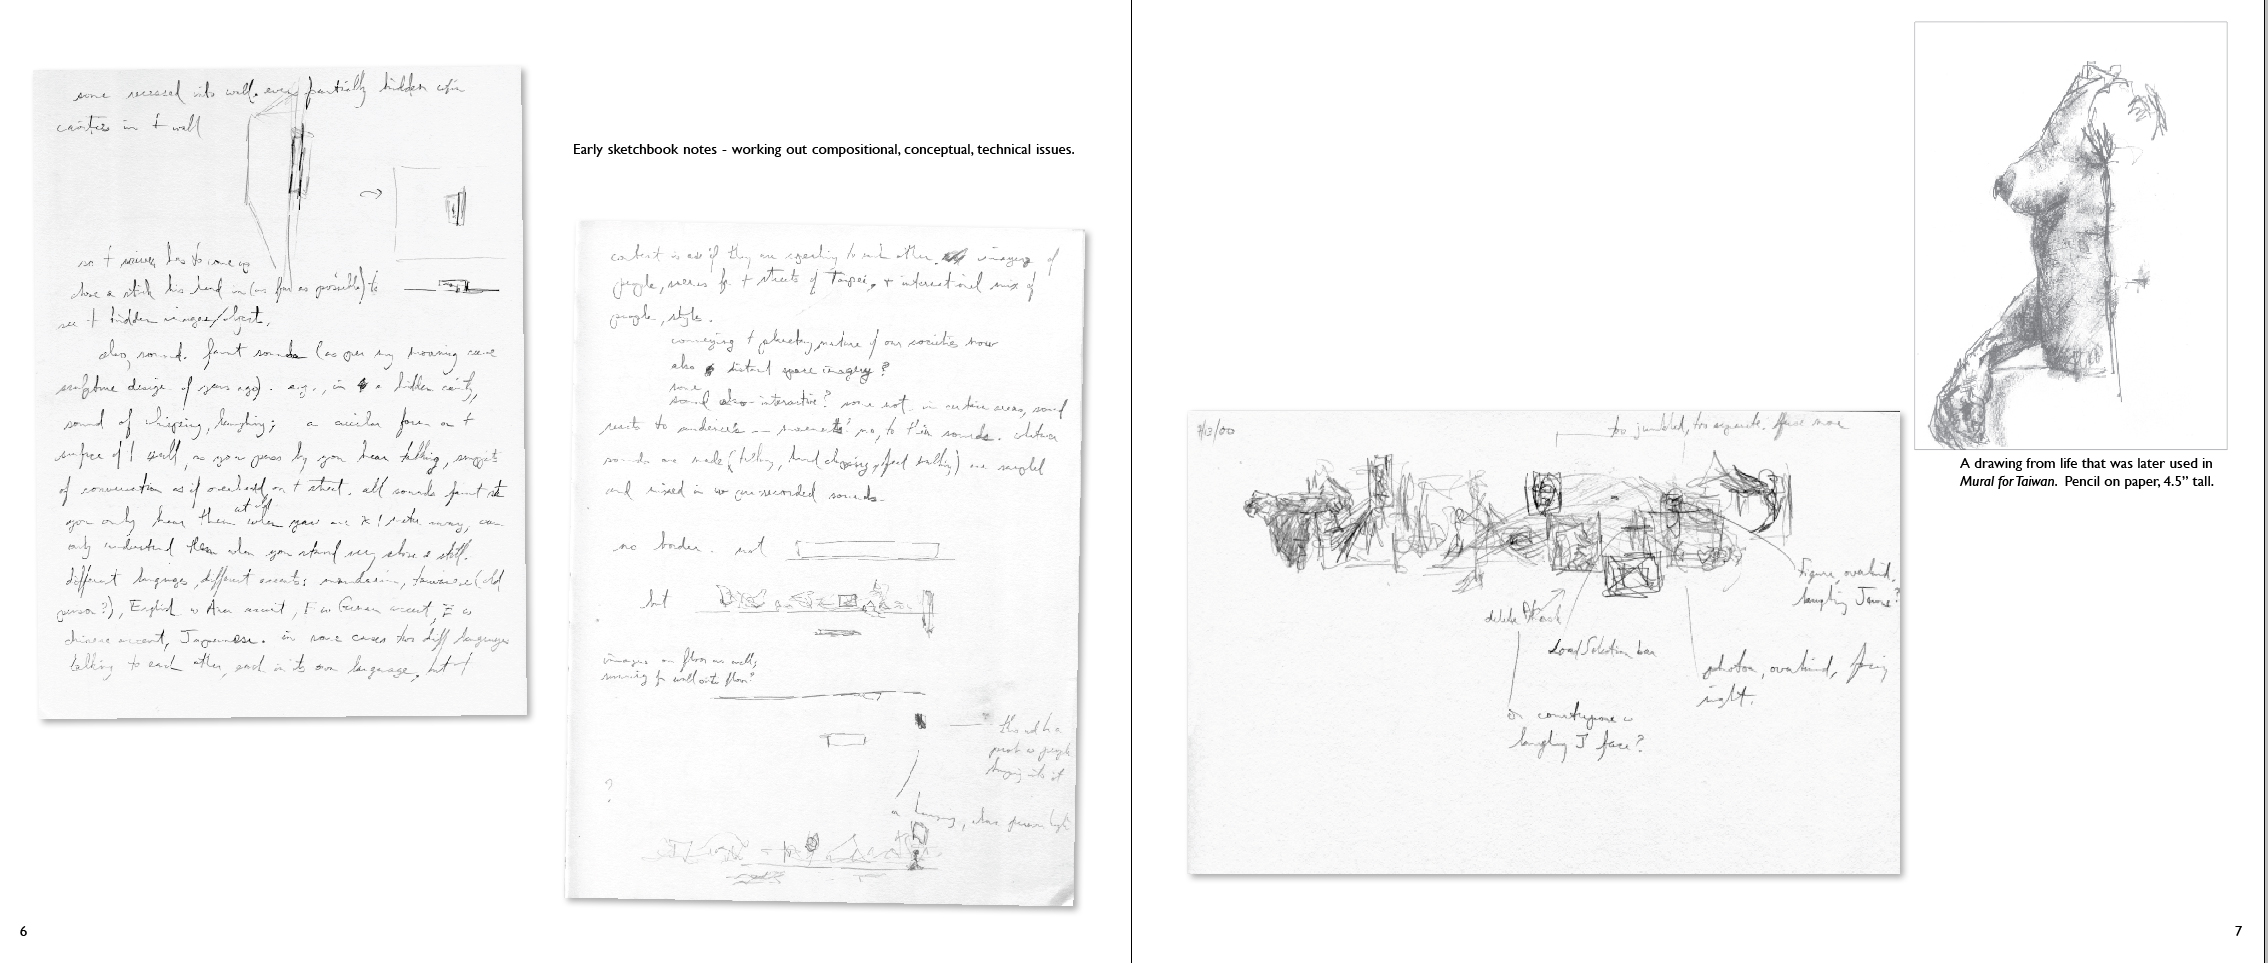 some recessed into wall, even partially hidden w/in
cavities in t wall
so t viewer has to come up
close & stick his head in (as far as possible) to
see t hidden images/object.
also, sound. faint sounds (as per my moaning cave
sculpture design of years ago). e.g., in a hidden cavity,
sound of whispering, laughing; a circular form on t
surface of t wall, as you pass by you hear talking, snippets
of conversation as if overheard on t street. all sounds faint
you only hear them at all when you are
only understand them when you stand very close & still.
different languages, different accents: mandarin, taiwanese (old
person?), English w Amer accent, E w German accent, E w
chinese accent, Japanese. in some cases two diff languages
talking to each other, each in its own language, but t
Early sketchbook notes - working out compositional, conceptual, technical issues.
content is as if they are speaking to each other. imagery of
people, scenes fr. t streets of Taipei, & international mix of
people, style.
conveying t planetary nature of our societies now
also distant space imagery?
some
sound also interactive? some not. in certain areas, sound
reacts to audience's movements? no, to their sounds. whatever
sounds are made (talking, hand clapping, feet walking) are sampled
and mixed in w pre-recorded sounds.
no border. not
but
images on floor as well,
running fr wall onto floor?
this a
prob as people
into it
?
or hanging, above person height
7/13/00
too jumbled, too separate. more
Figure, overlaid.
laughing J
delete
Load Selection
photo, overlaid, facing
right.
or counterpose w
laughing J face?
A drawing from life that was later used in
Mural for Taiwan. Pencil on paper, 4.5” tall.
6
7